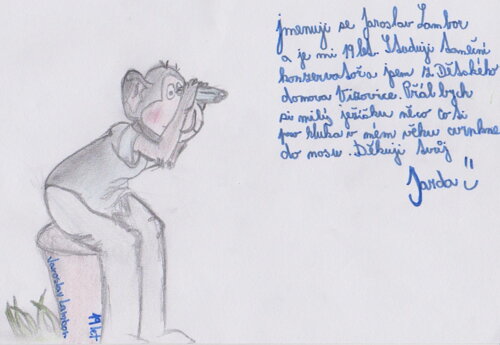 jmenuji se Jaroslav Lambor
a je mi 19 let. Studuji taneční
konzervatoř a jsem z Dětského
domova Vizovice. Přál bych
si milý ježíšku něco co si
pro kluka v mém věku cvrnkne
do nosu. Děkuji Tvůj
Jarda
Jaroslav Lambor
19 let